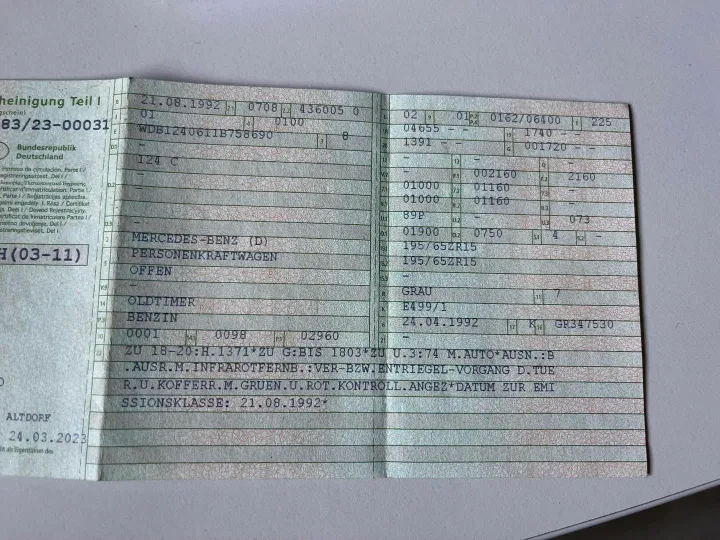 heinigung Teil I
gschein)
83/23-00031
Bundesrepublik
Deutschland
H(03-11)
ALTDORF
24.03.2023
21.08.1992 0708 436005 0
01 0100
WDB1240611B758690 8
-
124 C
-
-
-
MERCEDES-BENZ (D)
PERSONENKRAFTWAGEN
OFFEN
-
OLDTIMER
BENZIN
0001 0098 02960
02 01 0162/06400 225
04655 - - 1740 - -
1391 - - 001720 - -
- - -
- 002160 2160
01000 01160 -
01000 01160 -
89P - 073
01900 0750 4 -
195/65ZR15
195/65ZR15
-
GRAU 7
E499/1
24.04.1992 K GR347530
ZU 18-20:H.1371*ZU G:BIS 1803*ZU U.3:74 M.AUTO*AUSN.:B
.AUSR.M.INFRAROTFERNB.:VER-BZW.ENTRIEGEL-VORGANG D.TUE
R.U.KOFFERR.M.GRUEN.U.ROT.KONTROLL.ANGEZ*DATUM ZUR EMI
SSIONSKLASSE: 21.08.1992*